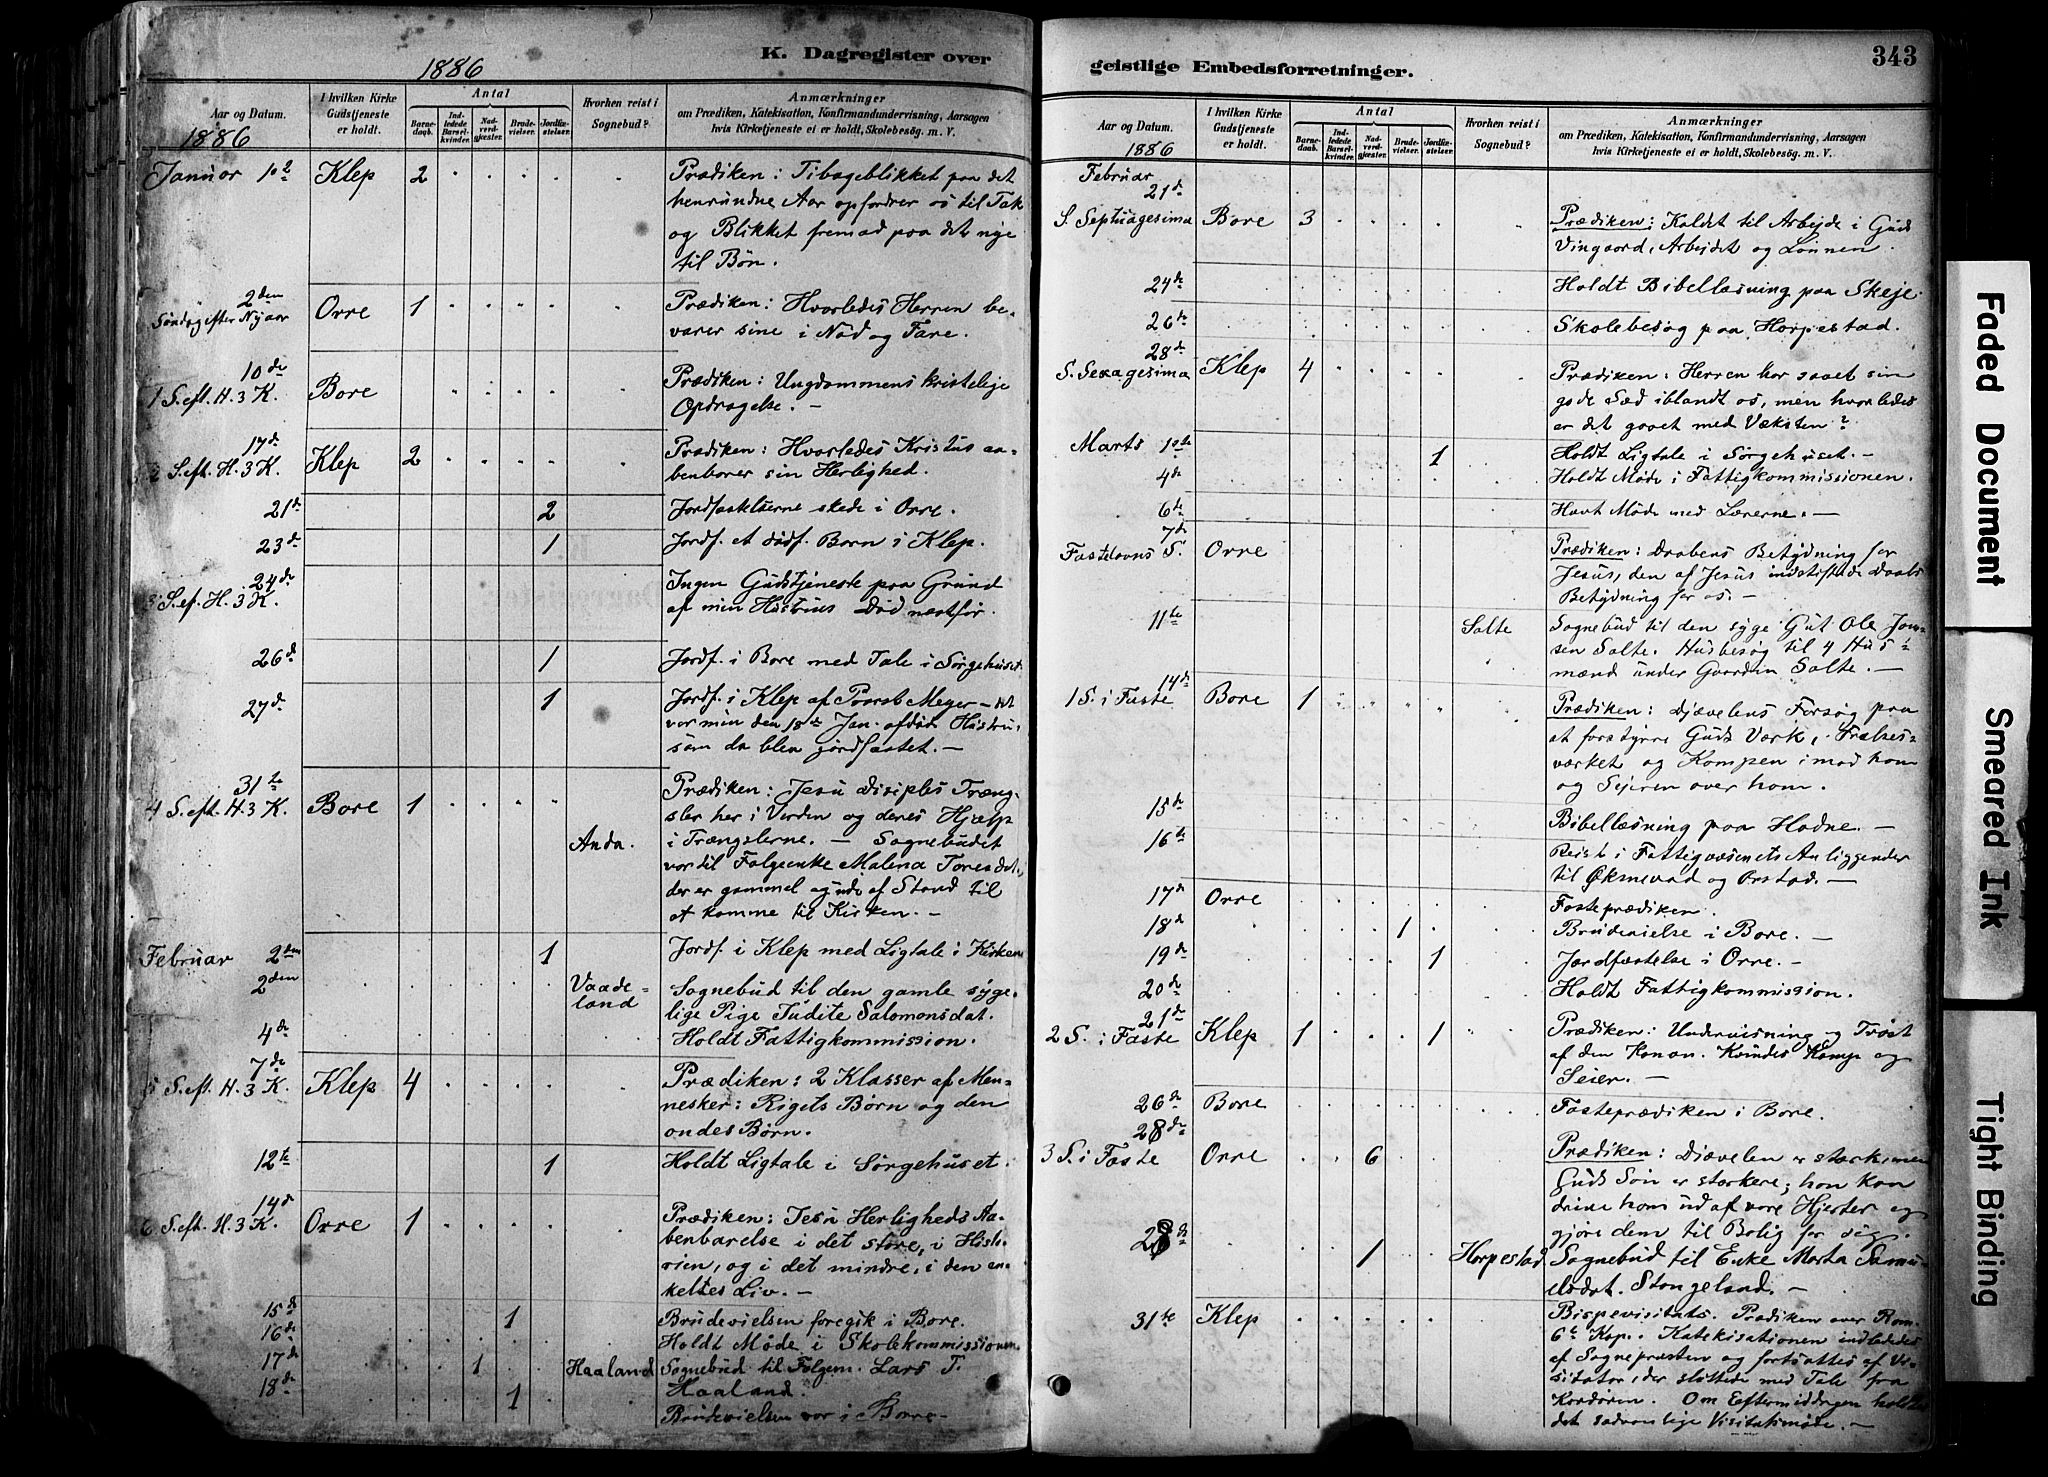 1886
K. Dagregister over
Aar og Datum.
1886
I hvilken Kirke Gudstjeneste er holdt.
Antal
Barne-daab.
Ind-ledede Barsel-kvinder.
Nad-verd-gjester.
Brude-vielser.
Jordfæ-stelser.
Hvorhen reist i Sognebud?
Anmærkninger
om Prædiken, Katekisation, Konfirmandundervisning, Aarsagen
hvis Kirketjeneste ei er holdt, Skolebesög. m. V.
Januar 1ste Klep 2 Prædiken: Tilbageblikket paa det
henrundne Aar opfordrer os til Tak
og Blikket fremad paa det nye
til Bøn.
2den
Søndag efter Nyaar Orre 1 Prædiken: Hvorledes Herren be-
varer sine i Nød og Fare.
10de
1 S. eft. H. 3 K. Bore Prædiken: Ungdommens kristelige
Opdragelse. —
17de
2 S. eft. H. 3 K. Klep 2 Prædiken: Hvorledes Kristus aa-
benbarer sin Herlighed.
21de 2 Jordfæstelserne skede i Orre.
23de 1 Jordf. et dødf. Barn i Klep.
24de
3 S. ef. H. 3 K. Ingen Gudstjeneste paa Grund
af min Hustrus Død næstfør.
26de 1 Jordf. i Bore med Tale i Sørgehuset.
27de 1 Jordf. i Klep af Meyer — det
var min den 18de Jan. afdøde Hustru,
som da blev jordfæstet. —
31te
4 S. eft. H. 3 K. Bore 1 Prædiken: Jesu Disiples Træng-
sler her i Verden og deres Hjælp
Anda. i Trængslerne. — Sognebudet
var til Følgeenke Malena Toresdat.,
der er gammel og ude af Stand til
at komme til Kirken. —
Februar 2den 1 Jordf. i Klep med Ligtale i Kirken
2den Vaade-land Sognebud til den gamle syge-
lige Pige Judite Salomonsdat.
4de Holdt Fattigkommission.
7de
5 S. eft. H. 3 K. Klep 4 Prædiken: 2 Klasser af Men-
nesker: Rigets Børn og den
ondes Børn.
12te 1 Holdt Ligtale i Sørgehuset.
14de
6 S. eft. H. 3 K. Orre 1 Prædiken: Jesu Herligheds Aa-
benbarelse i det store, i Histo-
rien, og i det mindre, i den en-
keltes Liv. —
15de 1 Brudevielsen foregik i Bore.
16de Holdt Møde i Skolekommissionen
17de 1 Haaland Sognebud til Følgem. Lars T.
Haaland.
18de 1 Brudevielsen var i Bore —
geistlige Embedsforretninger.
343
Aar og Datum.
1886
I hvilken Kirke Gudstjeneste er holdt.
Antal
Barne-daab.
Ind-ledede Barsel-kvinder.
Nad-verd-gjester.
Brude-vielser.
Jordfæ-stelser.
Hvorhen reist i Sognebud?
Anmærkninger
om Prædiken, Katekisation, Konfirmandundervisning, Aarsagen
hvis Kirketjeneste ei er holdt, Skolebesög. m. V.
Februar
21de
S. Septuagesima Bore 3 Prædiken: Kaldt til Arbejde i Guds
Vingaard, Arbejdet og Lønnen.
24de Holdt Bibellæsning paa Skeje
26de Skolebesøg paa Horpestad.
28de
S. Sexagesima Klep 4 Prædiken: Herren har saaet sin
gode Sæd iblandt os, men hvorledes
er det gaaet med Væksten?
Marts 1ste 1 Holdt Ligtale i Sørgehuset. —
4de Holdt Møde i Fattigkommissionen.
6te Havt Møde med Lærerne. —
7de
Fastelavns S. Orre Prædiken: Daabens Betydning for
Jesus, den af Jesus indstiftede Daabs
Betydning for os. —
11te Salte Sognebud til den syge Gut Ole Jon-
sen Salte. Husbesøg til 4 Hus-
mænd under Gaarden Salte. —
14de
1 S. i Faste Bore 1 Prædiken: Djævelens Forsøg paa
at forstyrre Guds Værk, Frelses-
værket og Kampen imod ham
og Sejeren over ham.
15de Bibellæsning paa Hodne. —
16te Reist i Fattigvæsenets Anliggender
til Øksnevad og Orstad. —
17de Orre Fasteprædiken.
18de 1 Brudevielse i Bore. —
19de 1 Jordfæstelse i Orre. —
20de Holdt Fattigkommission.
21de
2 S. i Faste Klep 1 1 Prædiken: Undervisning og Trøst
af den Kanan. Kvindes Kamp og
Seier. —
26de Bore Fasteprædiken i Bore.
28de
3 S. i Faste Orre 6 Prædiken: Djævelen er stærk, men
Guds Søn er stærkere; han kan
drive ham ud af vore Hjerter og
gjøre dem til Bolig for sig.
28de 1 Horpestad Sognebud til Enke Marta Samu-
elsdat. Stangeland. —
31te Klep Bispevisitats. Prædiken over Rom.
6te Kap. Katekisationen indlededes
af Sognepræsten og fortsattes af Vi-
sitator, der sluttede med Tale fra
Kordøren. Om Eftermiddagen holdtes
det sædvanlige Visitatsmøde. —
Faded Document
Smeared Ink
Tight Binding